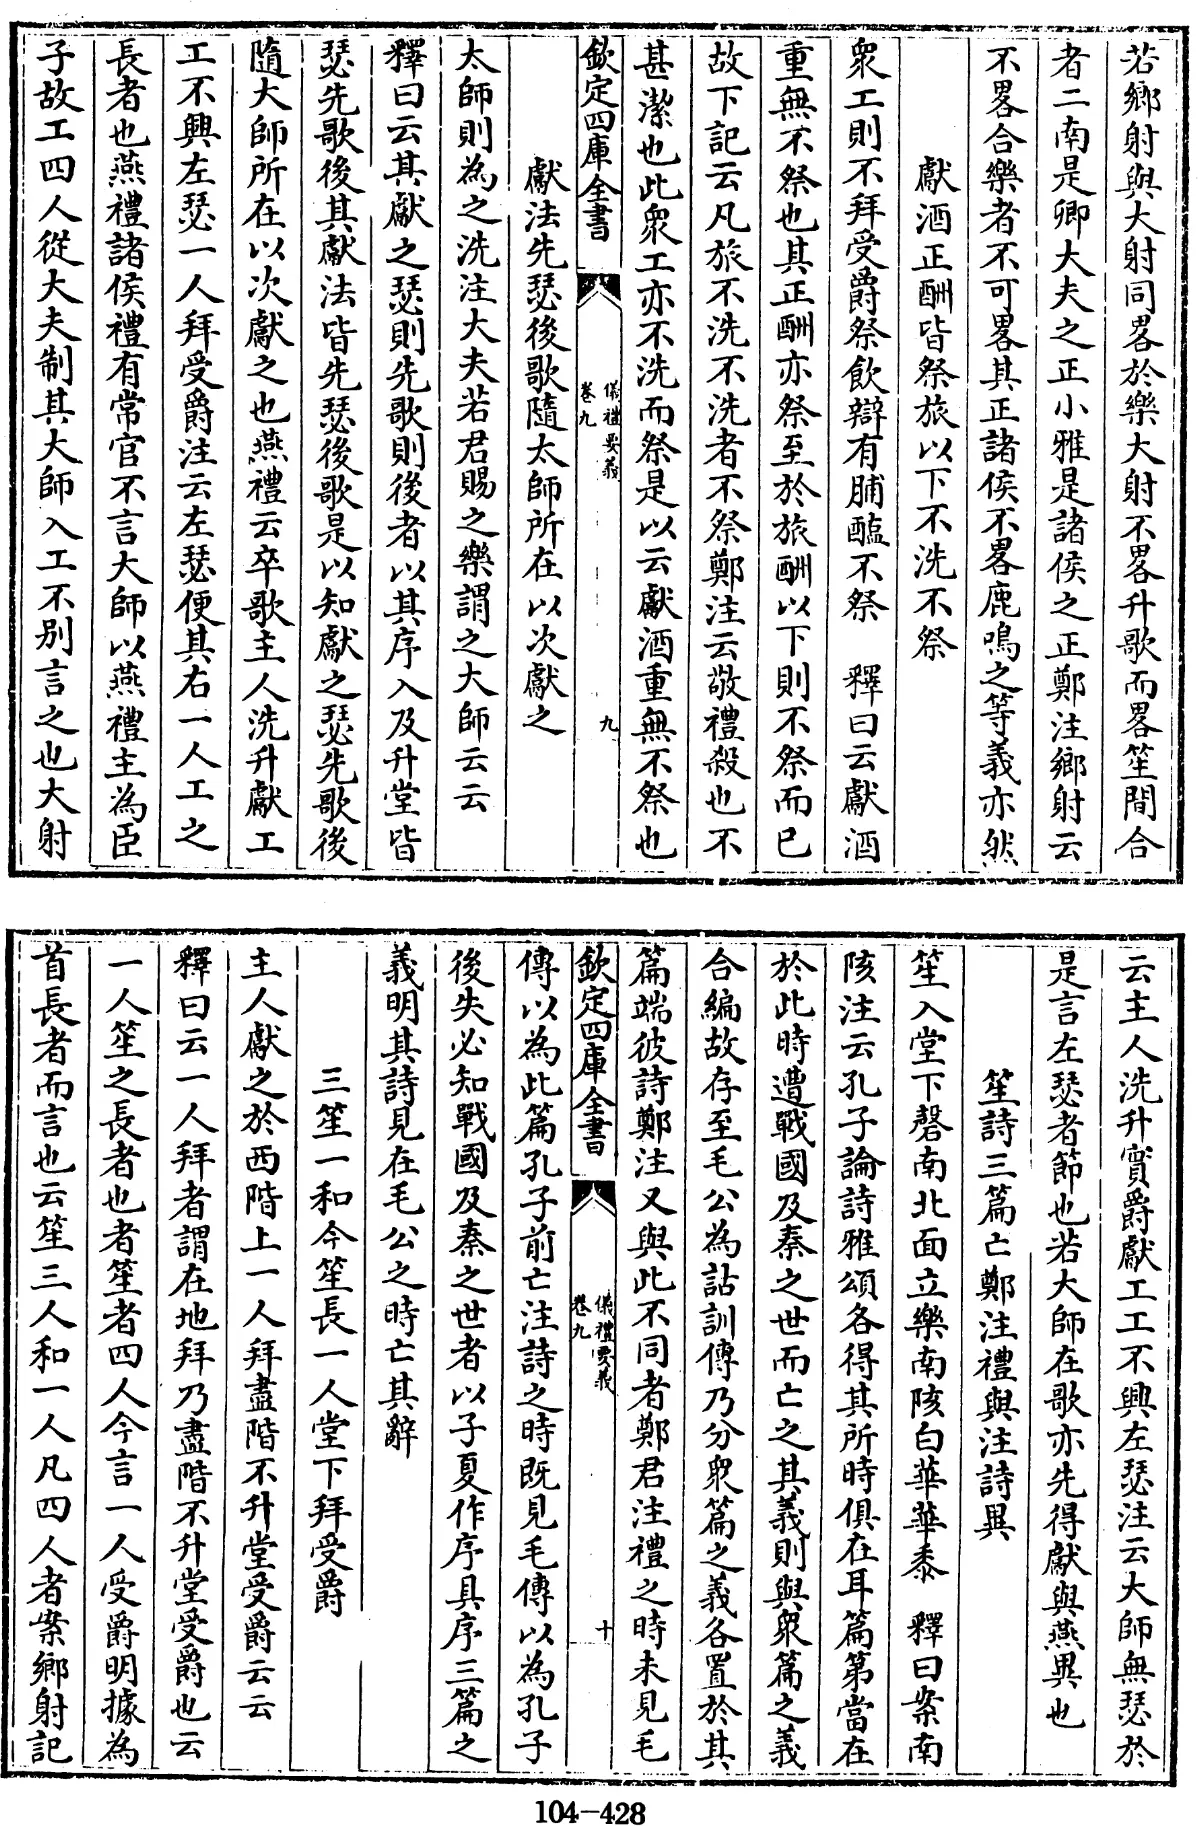 若鄉射與大射同畧於樂大射不畧升歌而畧笙間合
者二南是卿大夫之正小雅是諸侯之正鄭注鄉射云
不畧合樂者不可畧其正諸侯不畧鹿鳴之等義亦然
獻酒正酬皆祭旅以下不洗不祭
衆工則不拜受爵祭飲辯有脯醢不祭　釋曰云獻酒
重無不祭也其正酬亦祭至於旅酬以下則不祭而已
故下記云凡旅不洗不洗者不祭鄭注云敬禮殺也不
甚潔也此衆工亦不洗而祭是以云獻酒重無不祭也
欽定四庫全書
儀禮要義
卷九
九
獻法先瑟後歌隨太師所在以次獻之
太師則為之洗注大夫若君賜之樂謂之大師云云
釋曰云其獻之瑟則先歌則後者以其序入及升堂皆
瑟先歌後其獻法皆先瑟後歌是以知獻之瑟先歌後
隨大師所在以次獻之也燕禮云卒歌主人洗升獻工
工不興左瑟一人拜受爵注云左瑟便其右一人工之
長者也燕禮諸侯禮有常官不言大師以燕禮主為臣
子故工四人從大夫制其大師入工不別言之也大射
云主人洗升實爵獻工工不興左瑟注云大師無瑟於
是言左瑟者節也若大師在歌亦先得獻與燕異也
笙詩三篇亡鄭注禮與注詩異
笙入堂下磬南北面立樂南陔白華華黍　釋曰案南
陔注云孔子論詩雅頌各得其所時俱在耳篇第當在
於此時遭戰國及秦之世而亡之其義則與衆篇之義
合編故存至毛公為詁訓傳乃分衆篇之義各置於其
篇端彼詩鄭注又與此不同者鄭君注禮之時未見毛
欽定四庫全書
儀禮要義
卷九
十
傳以為此篇孔子前亡注詩之時既見毛傳以為孔子
後失必知戰國及秦之世者以子夏作序具序三篇之
義明其詩見在毛公之時亡其辭
三笙一和今笙長一人堂下拜受爵
主人獻之於西階上一人拜盡階不升堂受爵云云
釋曰云一人拜者謂在地拜乃盡階不升堂受爵也云
一人笙之長者也者笙者四人今言一人受爵明據為
首長者而言也云笙三人和一人凡四人者案鄉射記
104-428